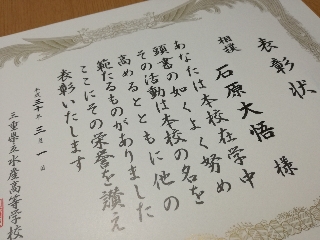 表彰状
相撲 石原大悟 様
あなたは本校在学中
頭書の如くよく努め
その活動は本校の名を
高めるとともに他の
範たるものがありました
ここにその栄誉を讃え
表彰いたします
平成三十年三月一日
三重県立水産高等学校